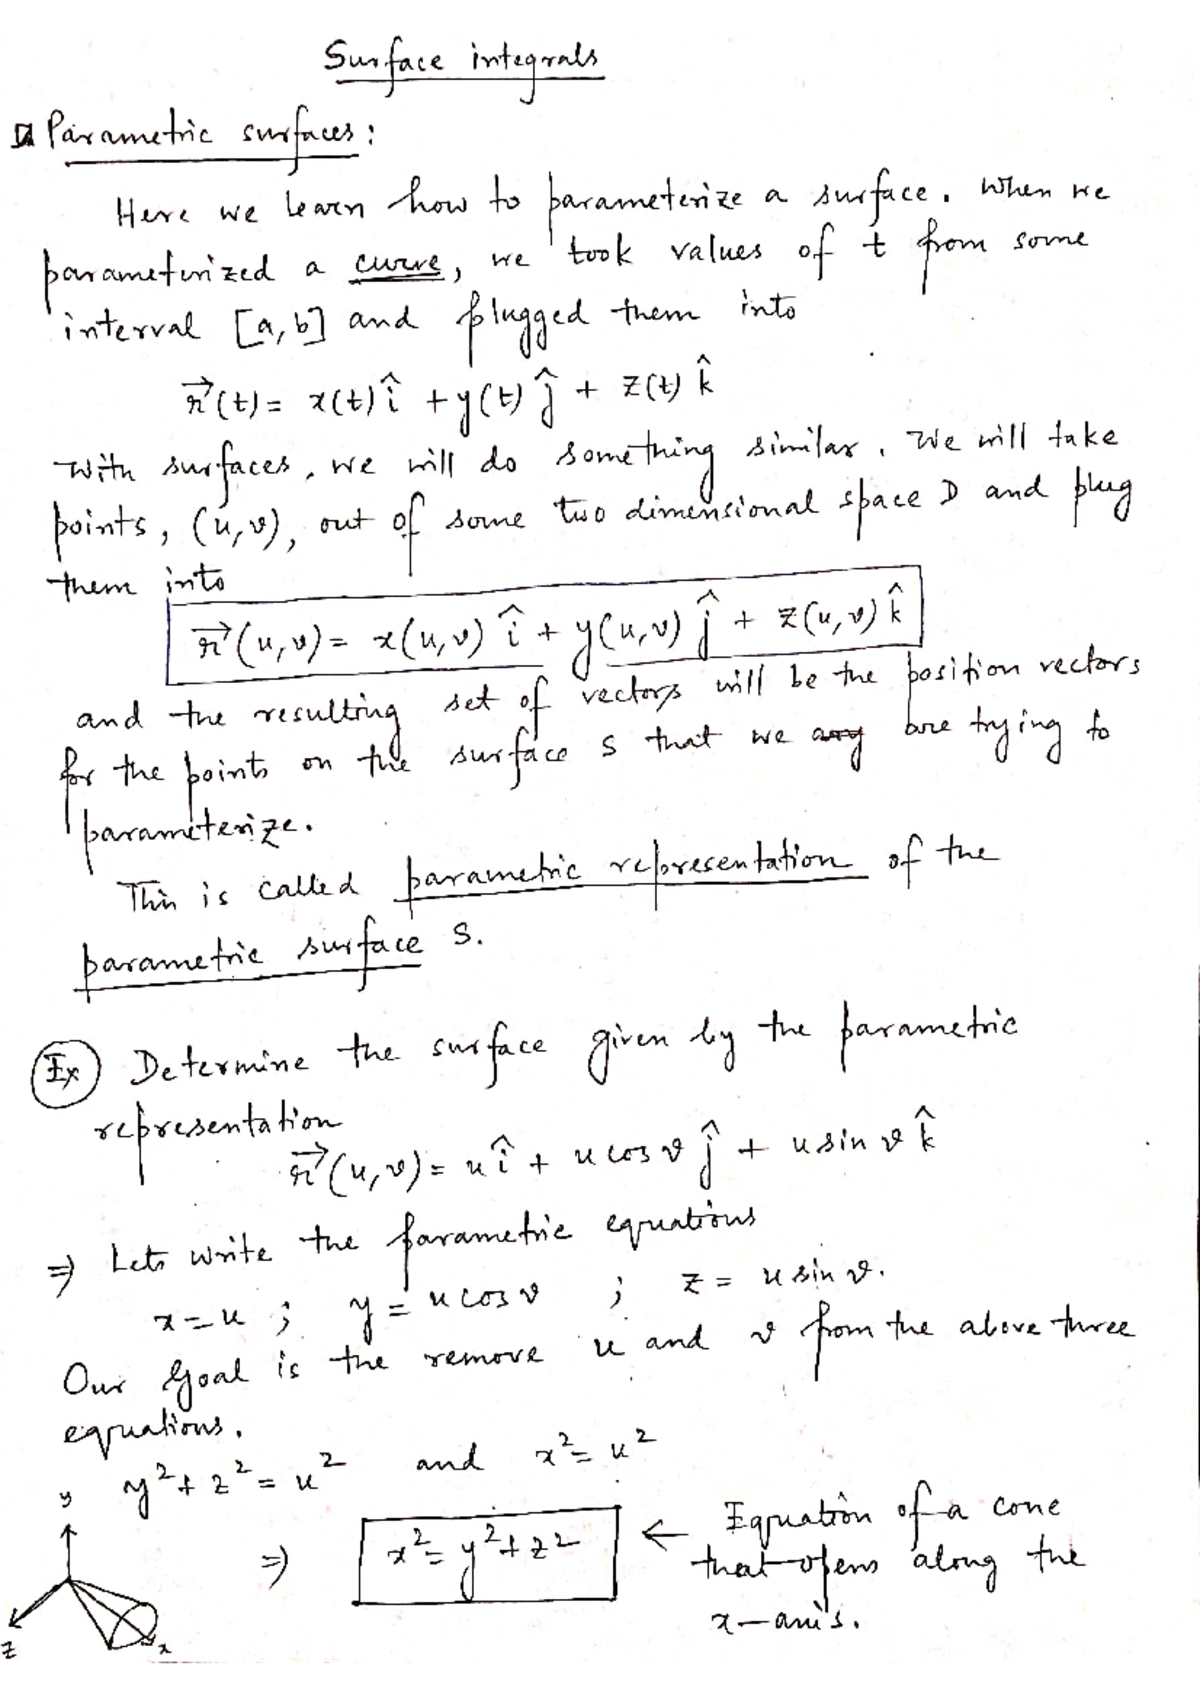 Surface integrals
Parametric surfaces:
Here we learn how to parameterize a surface. When we
parameterized a curve, we took values of t from some
interval [a, b] and plugged them into
r⃗(t) = x(t) î + y(t) ĵ + z(t) k̂
With surfaces, we will do something similar. We will take
points, (u, v), out of some two dimensional space D and plug
them into
r⃗(u, v) = x(u, v) î + y(u, v) ĵ + z(u, v) k̂
and the resulting set of vectors will be the position vectors
for the points on the surface S that we are trying to
parameterize.
This is called parametric representation of the
parametric surface S.
Ex Determine the surface given by the parametric
representation
r⃗(u, v) = u î + u cos v ĵ + u sin v k̂
⇒ Lets write the parametric equations
x = u ; y = u cos v ; z = u sin v.
Our Goal is the remove u and v from the above three
equations.
y² + z² = u² and x² = u²
⇒ x² = y² + z² ← Equation of a cone
that opens along the
x-axis.
y
z
x